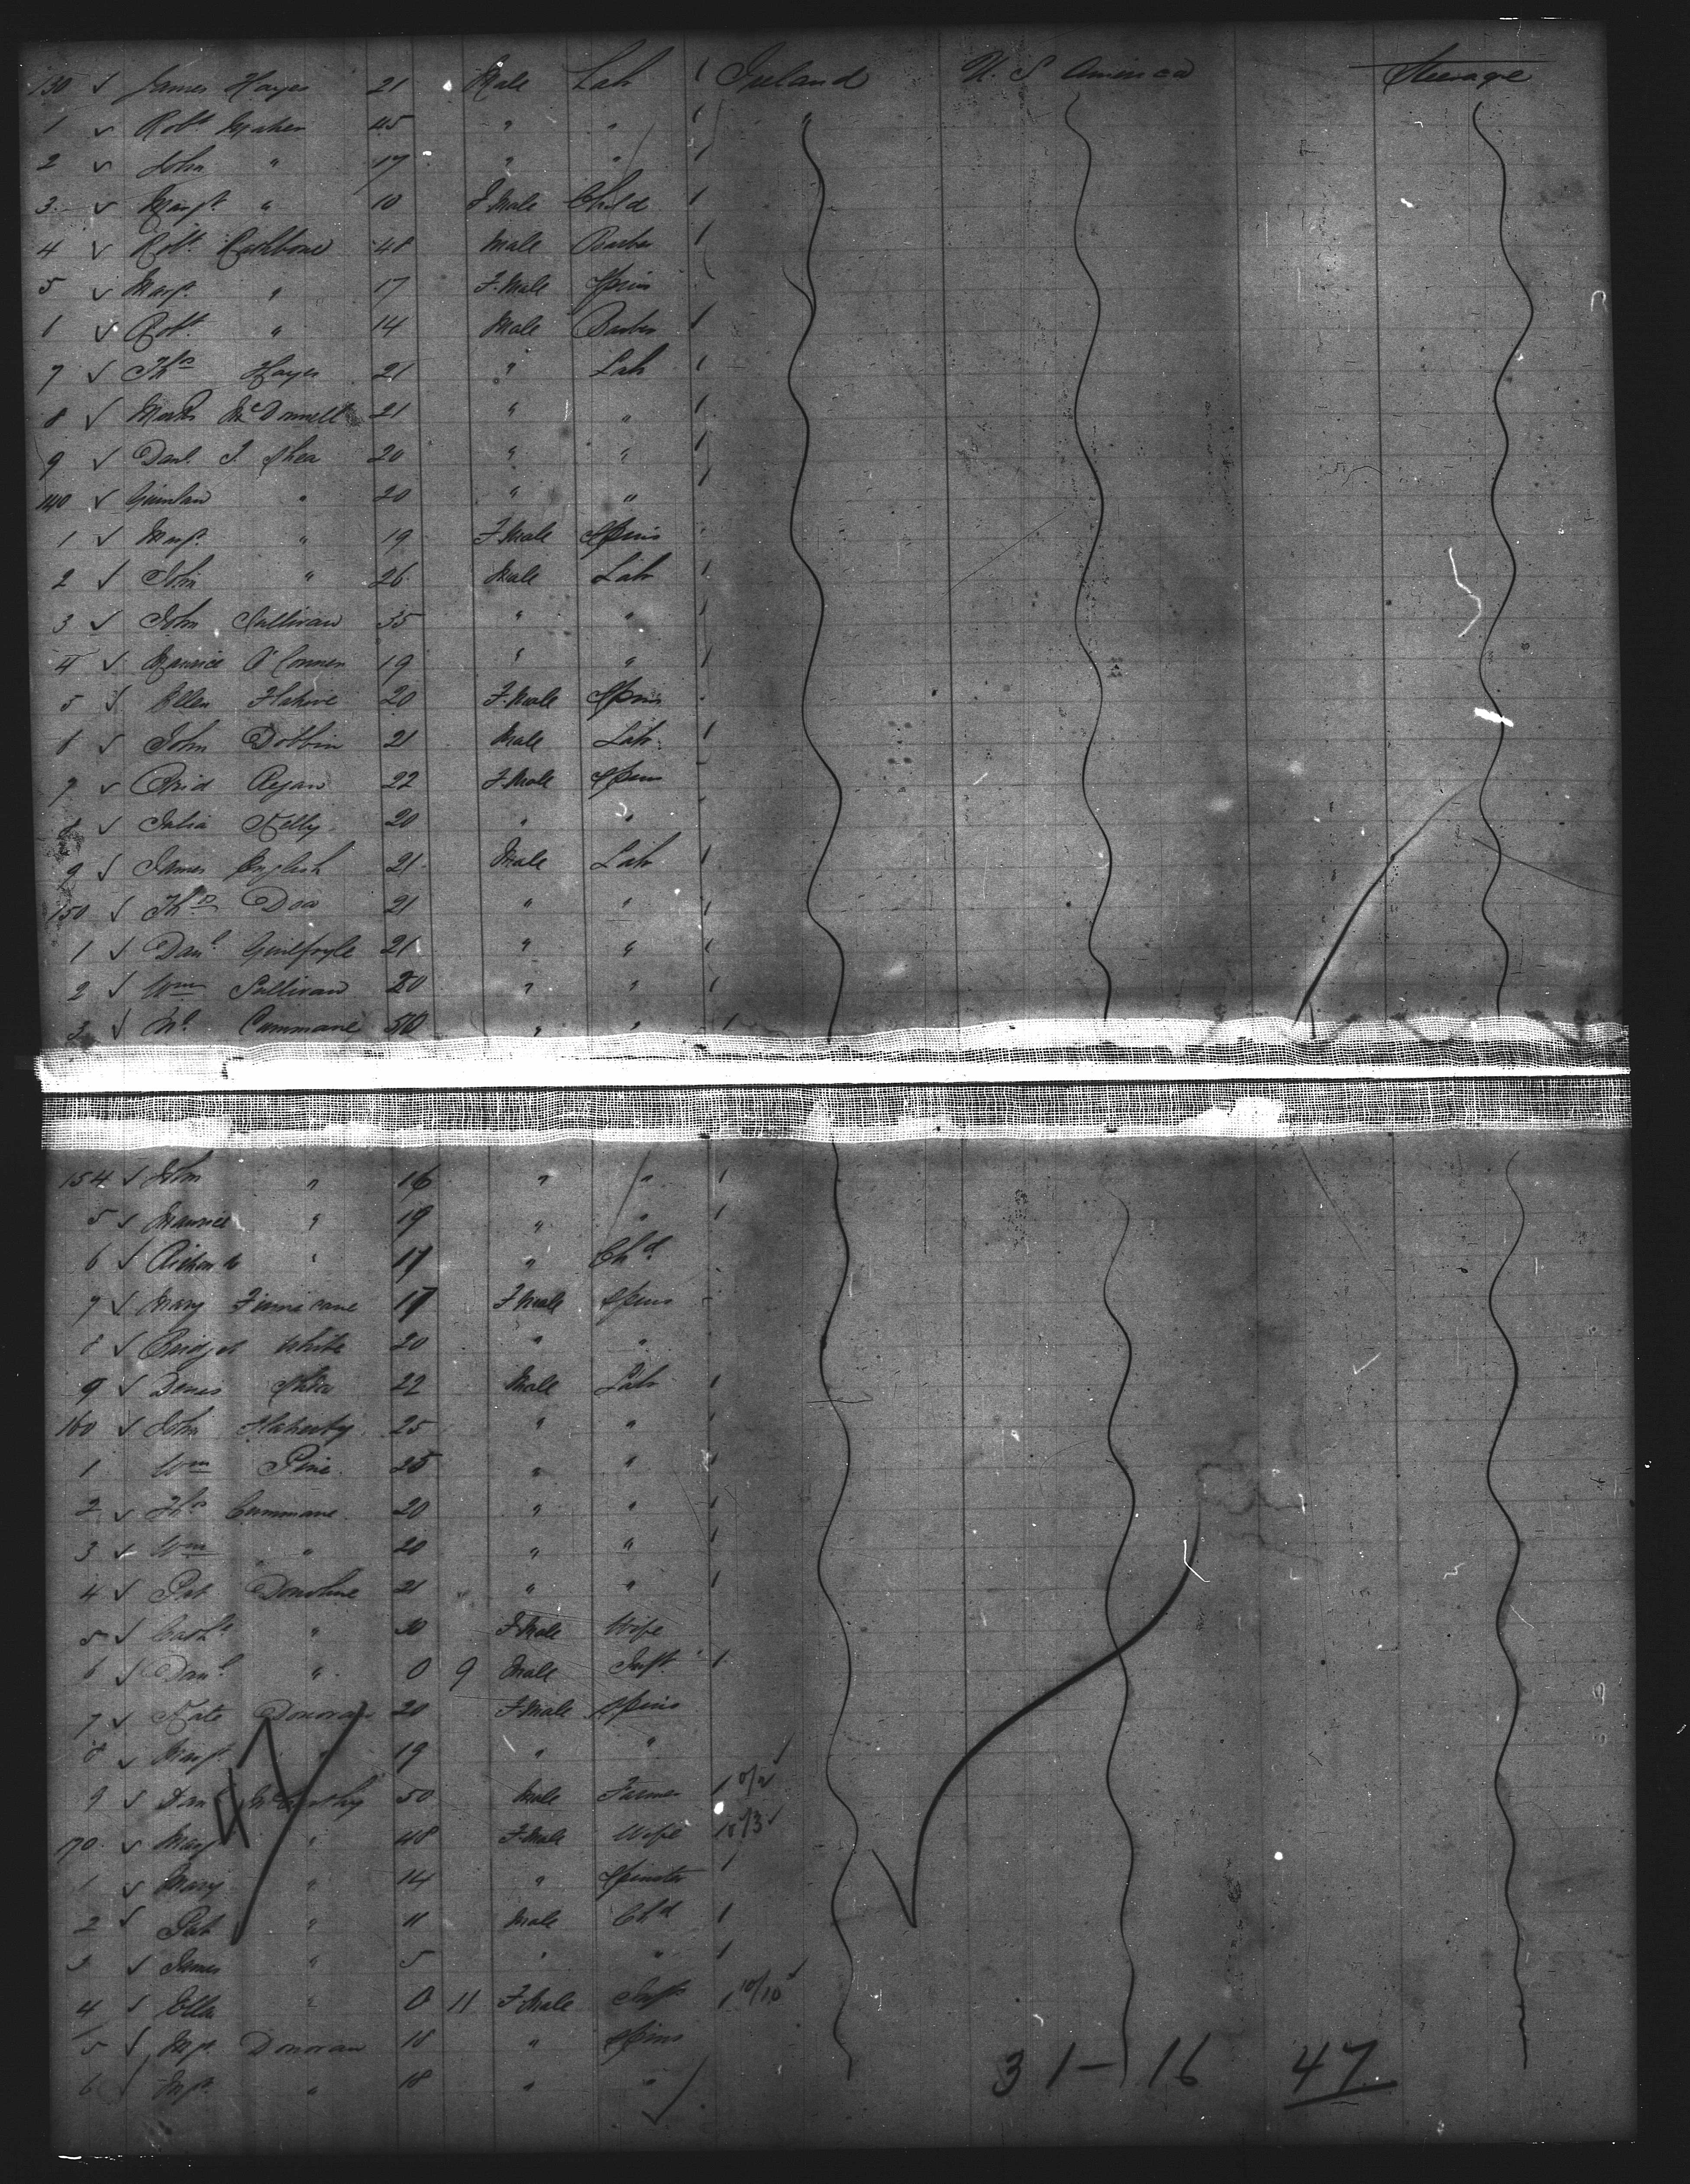 130 √ James Hayes 21 Male Lab 1 Ireland U. S America Steerage
1 √ Robt Maher 45 " " 1 "
2 √ John " 17 " " 1
3 √ Margt " 10 F. Male Child 1
4 √ Robt Rathbone 48 Male Barber 1
5 √ Margt " 17 F. Male Spins
√ Robt " 14 Male Barber 1
7 √ Thos Hayes 21 " Lab 1
8 √ McDonnell 21 " " 1
9 √ Danl J. Shea 20 " " 1
140 √ Quinlan " 20 " " 1
1 √ Margt " 19 F. Male Spins
2 √ John " 26 Male Lab 1
3 √ John Sullivan 35 " " 1
4 √ Maurice O'Connor 19 " " 1
5 √ Ellen 20 F. Male Spins
6 √ John Dobbin 21 Male Lab 1
7 √ Brid Ryan 22 F. Male Spins
8 √ Julia Kelly 20 " "
9 √ James English 21 Male Lab 1
150 √ Thos 21 " " 1
1 √ Danl Guilfoyle 21 " " 1
2 √ Wm Sullivan 20 " " 1
3 √ Cummane 50 " " 1
154 √ John " 16 " " 1
5 √ Maurice " 19 " " 1
6 √ Richard " " Chd
7 √ Mary Finnicane 17 F. Male Spins
8 √ Bridget White 20 " "
9 √ Denis Shea 22 Male Lab 1
160 √ John Flaherty 25 " " 1
1 Wm 25 " " 1
2 √ Thos Cummane 20 " " 1
3 √ Wm " 20 " " 1
4 √ Pat Donohue 21 " " 1
5 √ Cathe " 30 F. Male Wife
6 √ Danl " 0 9 Male Inft 1
7 √ Kate Donovan 20 F. Male Spins
8 √ Margt " 19 " "
9 √ Danl McCarthy 50 Male Farmer 1
170 √ " 48 F. Male Wife
1 √ Mary " 14 " Spinster
2 √ Pat " 11 Male Chd 1
3 √ James " 5 " " 1
4 √ Ellen " 0 11 F. Male Inft 1 10/10 √
5 √ Mgt Donovan 18 " Spins
6 √ Mgt " 18 " "
31 – 16 47